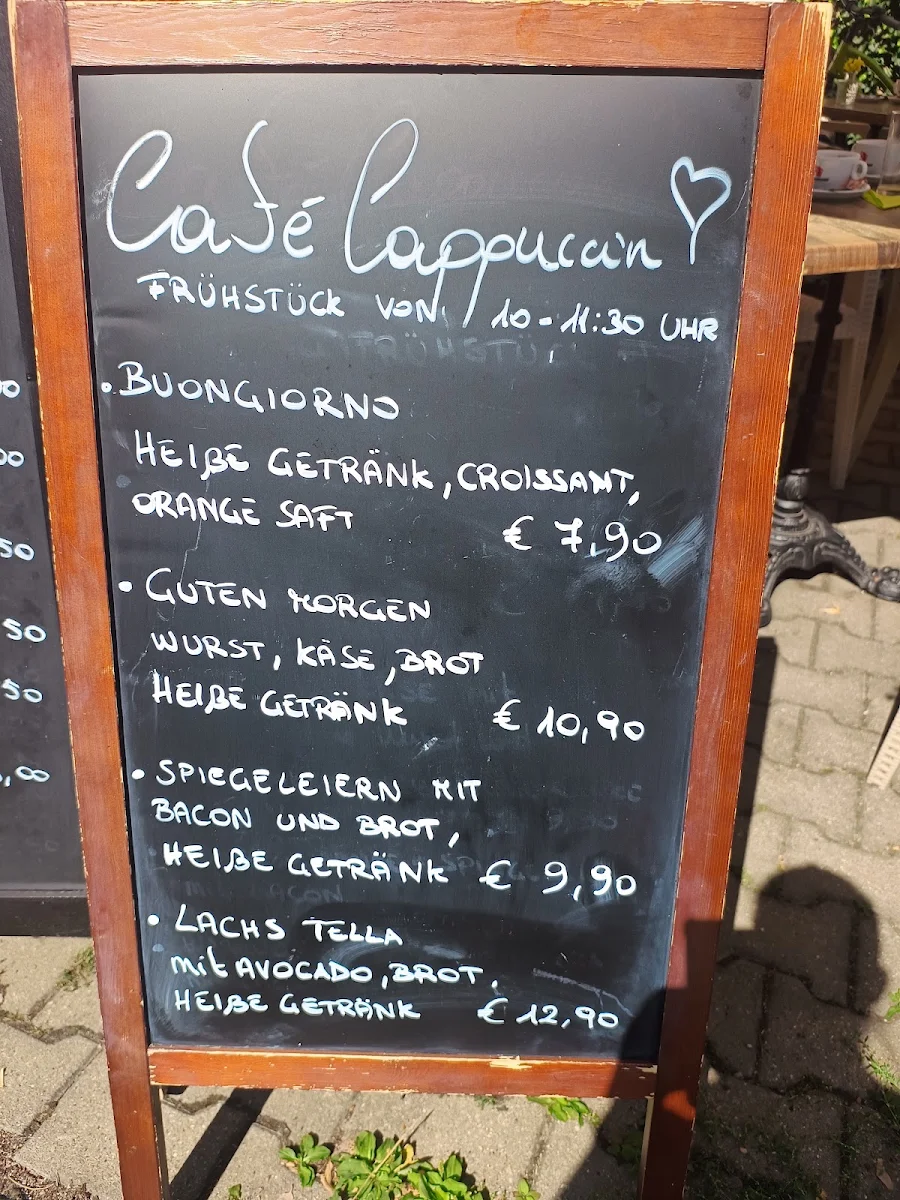 Café Cappuccin
FRÜHSTÜCK VON 10-11:30 UHR
• BUONGIORNO
HEIßE GETRÄNK, CROISSANT,
ORANGE SAFT € 7,90
• GUTEN MORGEN
WURST, KÄSE, BROT
HEIßE GETRÄNK € 10,90
• SPIEGELEIERN MIT
BACON UND BROT,
HEIßE GETRÄNK € 9,90
• LACHS TELLA
mit AVOCADO, BROT,
HEIßE GETRÄNK € 12,90
50
50
50